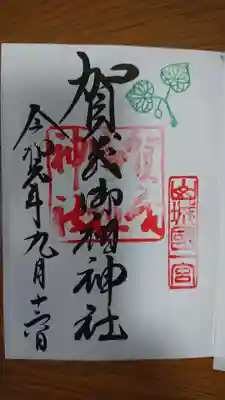 山城國一宮
賀茂御祖神社
賀茂
神社
令和元年九月十六日